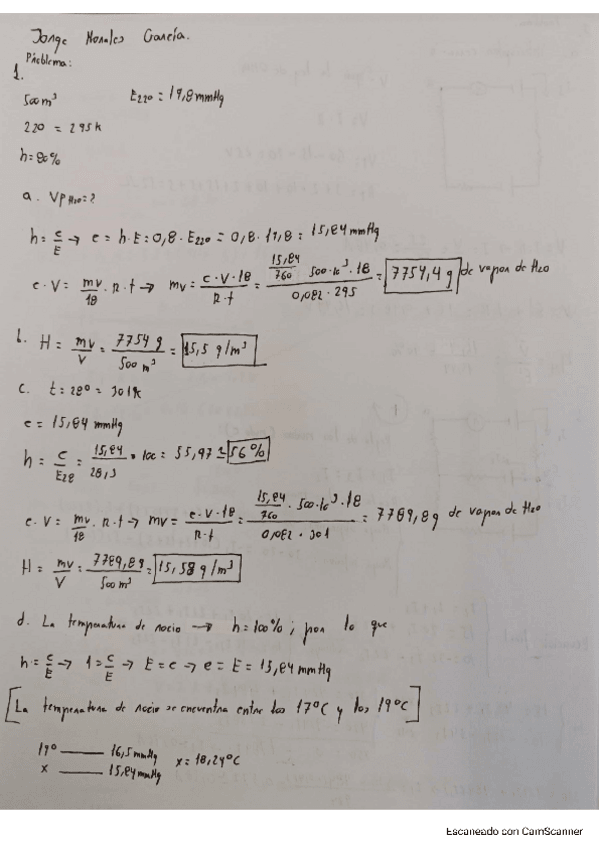 Jorge Morales García.
Problema:
1.
500 m³ E22º = 19,8 mmHg
22º = 295 k
h = 80%
a. VpH2O = ?
h = e/E → e = h·E = 0,8 · E22º = 0,8 · 19,8 = 15,84 mmHg
e·V = mv/18 · R·t → mv = e·V·18/R·t = 15,84/760 · 500·10³ · 18 / 0,082 · 295 = 7754,4 g de vapor de H2O
b. H = mv/V = 7754 g/500 m³ = 15,5 g/m³
c. t = 28º = 301k
e = 15,84 mmHg
h = e/E28 = 15,84/28,3 · 100 = 55,97 ≃ 56%
e·V = mv/18 · R·t → mv = e·V·18/R·t = 15,84/760 · 500·10³ · 18 / 0,082 · 301 = 7789,8 g de vapor de H2O
H = mv/V = 7789,8 g/500 m³ = 15,58 g/m³
d. La temperatura de rocio → h = 100%; por lo que
h = e/E → 1 = e/E → E = e → e = E = 15,84 mmHg
[La temperatura de rocio se encuentra entre los 17ºC y los 19ºC]
19º — 16,5 mmHg x = 18,24ºC
x — 15,84 mmHg
Escaneado con CamScanner